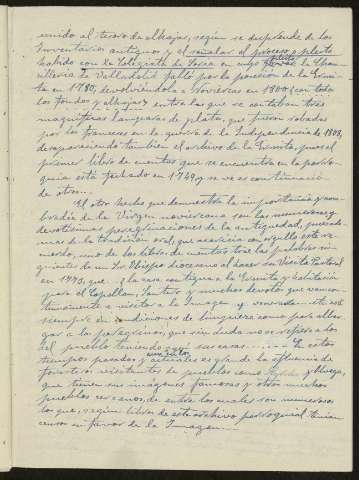 unido al tesoro de alhajas, según se desprende de los
inventarios antiguos y el señalar el proceso o pleito
habido con la Colegiata de Soria en cuyo pleito la Chan-
cillería de Valladolid falló por la posesión de la Ermi-
ta en 1780, devolviéndola a Noviercas en 1800 (con todos
los fondos y alhajas) entre las que se contaban tres
magníficas lámparas de plata, que fueron robadas
por los franceses en la guerra de la Independencia de 1808,
desapareciendo también el archivo de la Ermita, pues el
primer libro de cuentas que se encuentra en la parro-
quia está fechado en 1749 y se ve es continuación
de otros...
El otro hecho que demuestra la importancia y nom-
bradía de la Virgen noviercana son las numerosas y
devotísimas peregrinaciones de la antiguedad, pues ade-
más de la tradición oral, que acaricia con orgullo este re-
cuerdo, uno de los libros de cuentas trae las palabras si-
guientes de un Sr. Obispo diocesano al hacer su Visita Pastoral
en 1793, que "La casa contigua a la Ermita y habitación
para el Capellan, Santero y muchos devotos que van con-
tinuamente a visitar a la Imagen y venerada esté
siempre en condiciones de limpieza como para alber-
gar a los peregrinos, que sin duda no se refiere a los
del pueblo teniendo aquí sus casas...... En estos
tiempos pasados y actuales es grande la afluencia de
forasteros visitantes de pueblos como y Olvega,
que tienen sus imágenes famosas y otros muchos
pueblos cercanos, de entre los cuales son numerosos
los que, según libros de este archivo parroquial tenían
censos en favor de la Imagen......